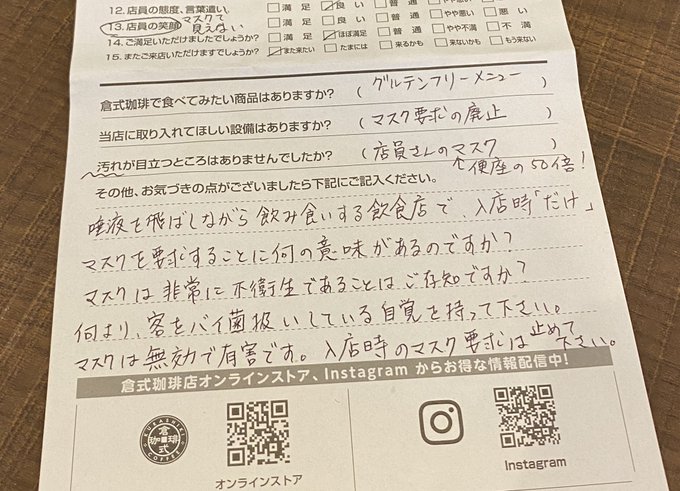 12. 店員の態度、言葉遣い 満足 良い 普通 やや悪い 悪い
13. 店員の笑顔 マスクで見えない 満足 良い 普通 やや悪い 悪い
14. ご満足いただけましたでしょうか? 満足 ほぼ満足 普通 やや不満 不満
15. またご来店いただけますでしょうか? また来たい たまには 来るかも 来ないかも もう来ない
倉式珈琲で食べてみたい商品はありますか? (グルテンフリーメニュー)
当店に取り入れてほしい設備はありますか? (マスク要求の廃止)
汚れが目立つところはありませんでしたか? (店員さんのマスク)
↑便座の50倍!
その他、お気づきの点がございましたら下記にご記入ください。
唾液を飛ばしながら飲み食いする飲食店で、入店時「だけ」
マスクを要求することに何の意味があるのですか?
マスクは非常に不衛生であることはご存知ですか?
何より、客をバイ菌扱いしている自覚を持って下さい。
マスクは無効で有害です。入店時のマスク要求は止めて下さい。
倉式珈琲店オンラインストア、Instagram からお得な情報配信中!
KURASHIKI COFFEE 倉式珈琲
オンラインストア
Instagram